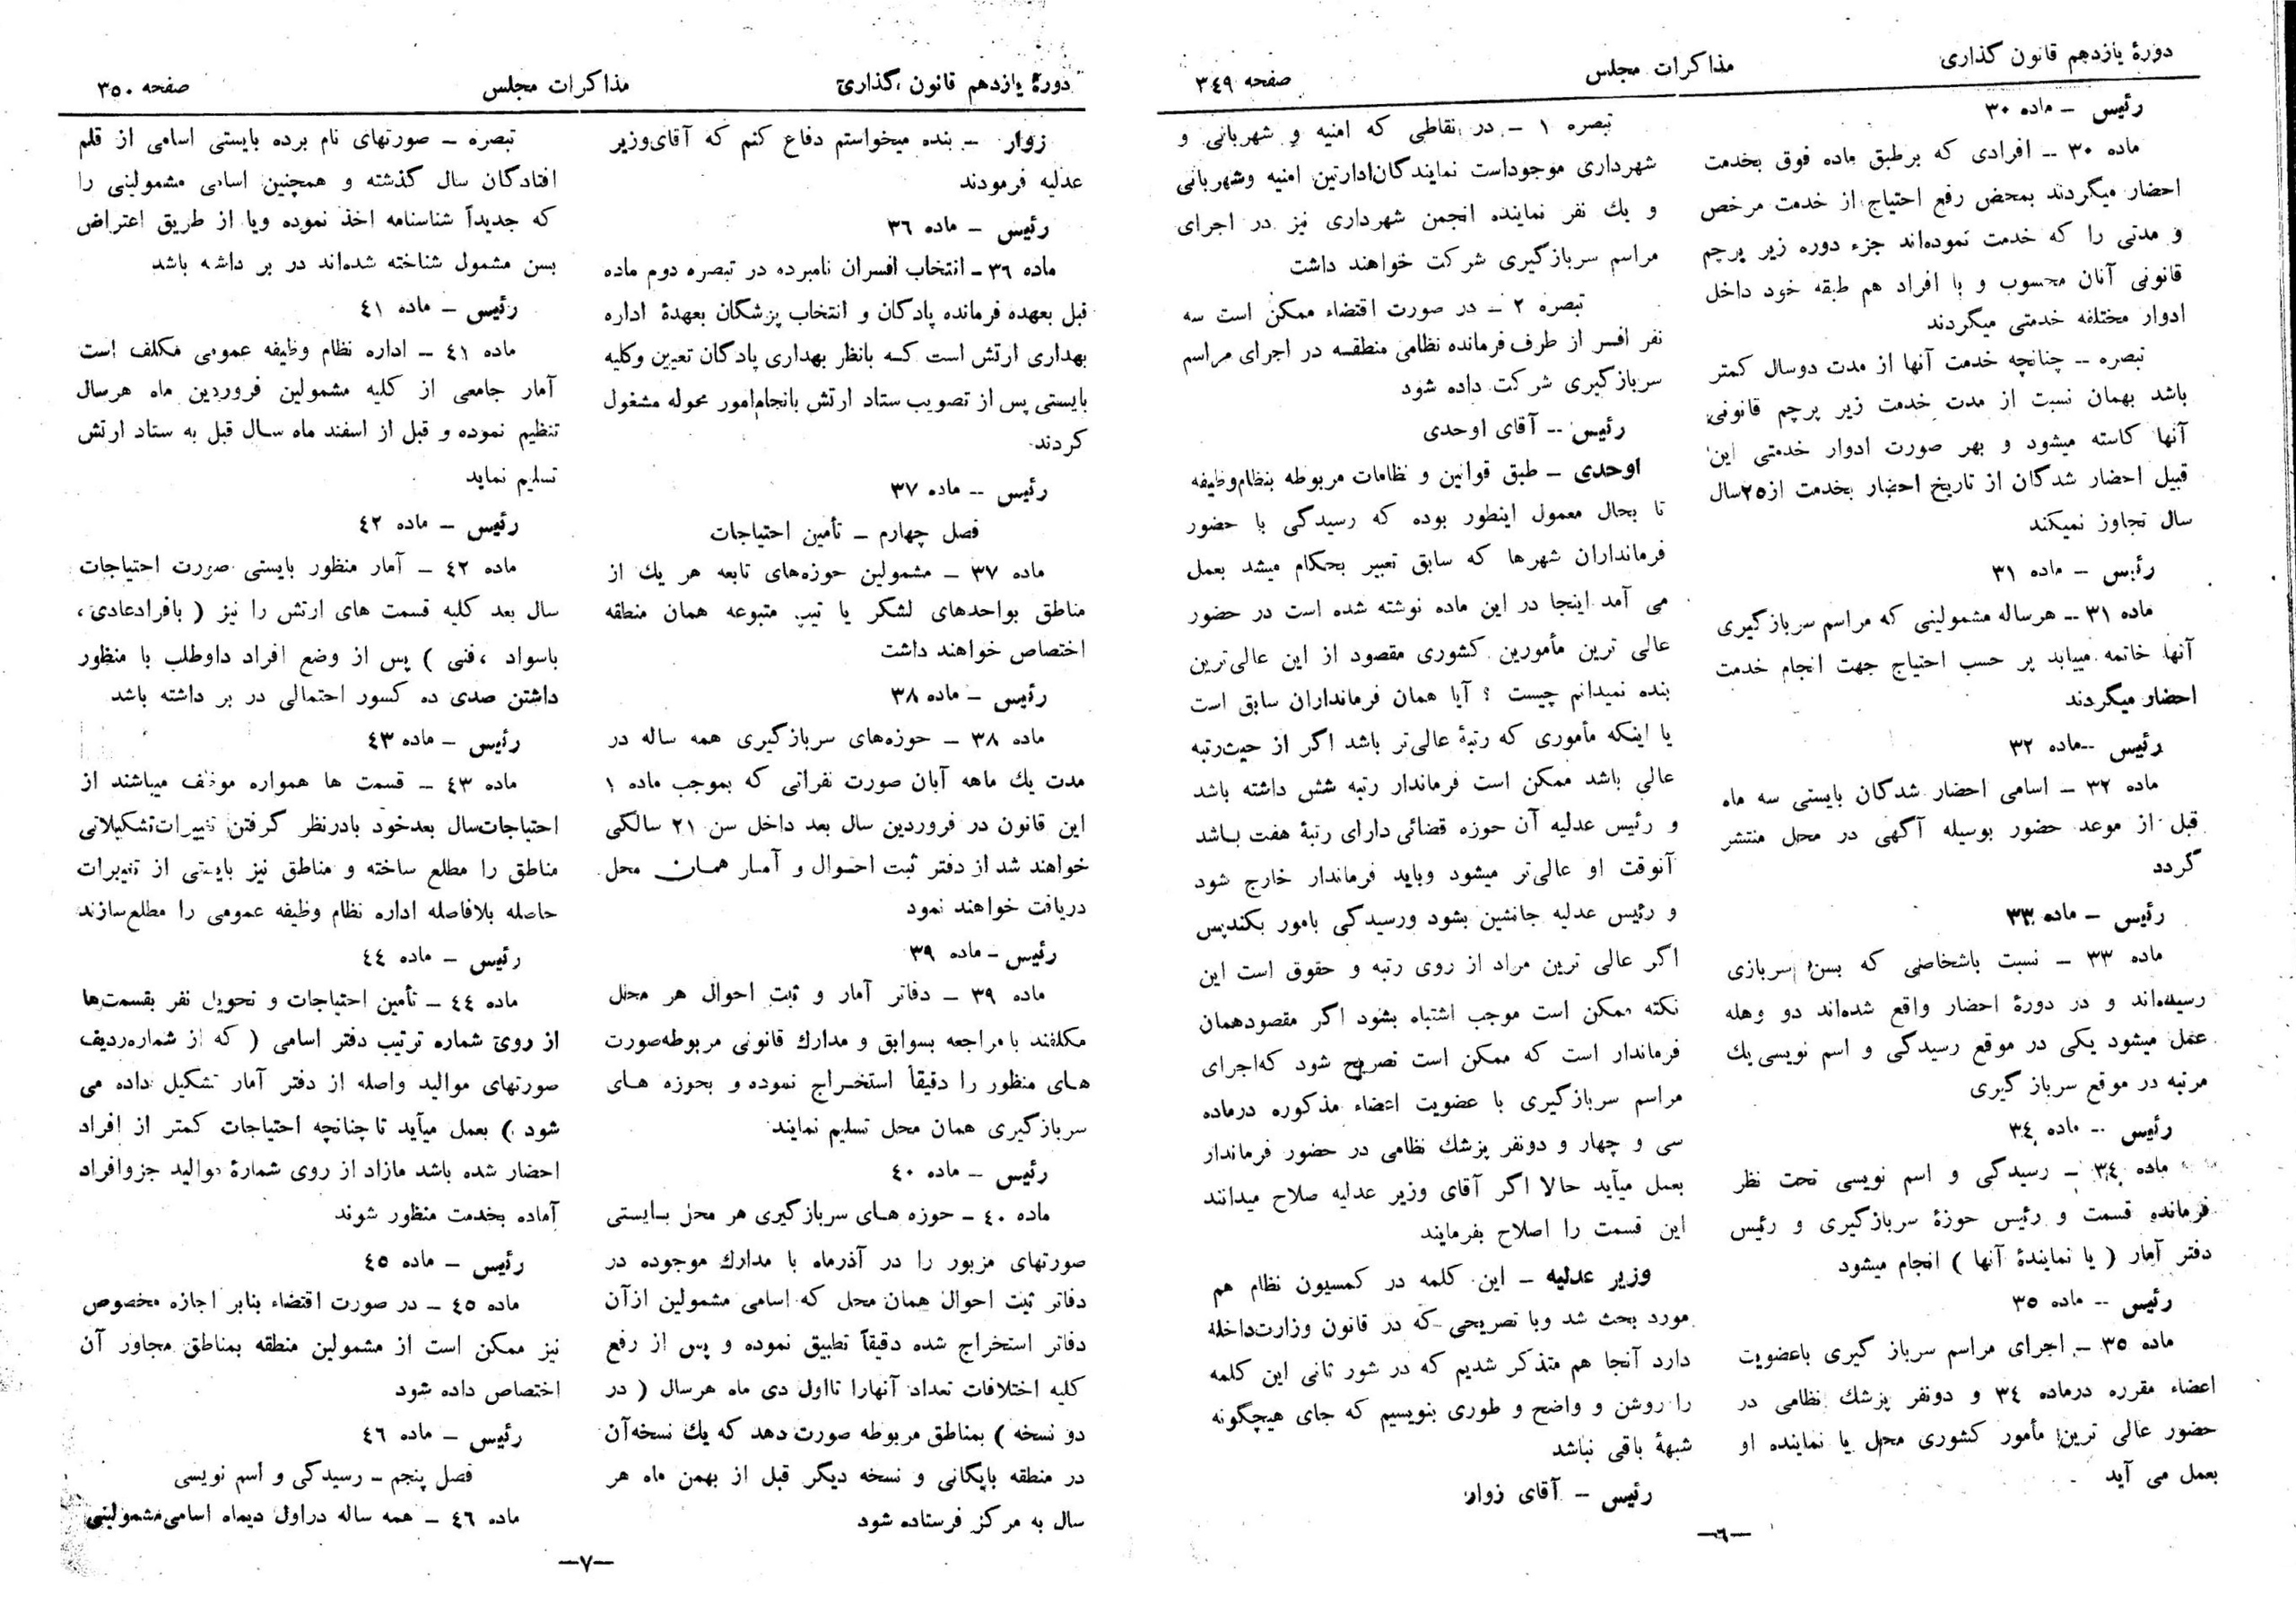 دورهٔ یازدهم قانون گذاری
مذاکرات مجلس
صفحه ۳٤۹
رئیس – ماده ۳۰
ماده ۳۰ – افرادی که برطبق ماده فوق بخدمت
احضار میگردند بمحض رفع احتیاج از خدمت مرخص
و مدتی را که خدمت نموده‌اند جزء دوره زیر پرچم
قانونی آنان محسوب و با افراد هم طبقه خود داخل
ادوار مختلفه خدمتی میگردند
تبصره – چنانچه خدمت آنها از مدت دوسال کمتر
باشد بهمان نسبت از مدت خدمت زیر پرچم قانونی
آنها کاسته میشود و بهر صورت ادوار خدمتی این
قبیل احضار شدگان از تاریخ احضار بخدمت از ۲۵سال
سال تجاوز نمیکند
رئیس – ماده ۳۱
ماده ۳۱ – هرساله مشمولینی که مراسم سربازگیری
آنها خاتمه مییابد بر حسب احتیاج جهت انجام خدمت
احضار میگردند
رئیس –ماده ۳۲
ماده ۳۲ – اسامی احضار شدگان بایستی سه ماه
قبل از موعد حضور بوسیله آگهی در محل منتشر
گردد
رئیس – ماده ۳۳
ماده ۳۳ – نسبت باشخاصی که بسن سربازی
رسیده‌اند و در دورهٔ احضار واقع شده‌اند دو وهله
عمل میشود یکی در موقع رسیدگی و اسم نویسی یك
مرتبه در موقع سرباز گیری
رئیس – ماده ۳٤
ماده ۳٤ – رسیدگی و اسم نویسی تحت نظر
فرمانده قسمت و رئیس حوزهٔ سربازگیری و رئیس
دفتر آمار ( یا نمایندهٔ آنها ) انجام میشود
رئیس – ماده ۳۵
ماده ۳۵ – اجرای مراسم سرباز گیری باعضویت
اعضاء مقرره درماده ۳٤ و دونفر پزشك نظامی در
حضور عالی ترین مأمور کشوری محل یا نماینده او
بعمل می آید
تبصره ۱ – در نقاطی که امنیه و شهربانی و
شهرداری موجوداست نمایندگان‌ادارتین امنیه وشهربانی
و یك نفر نماینده انجمن شهرداری نیز در اجرای
مراسم سربازگیری شرکت خواهند داشت
تبصره ۲ – در صورت اقتضاء ممکن است سه
نفر افسر از طرف فرمانده نظامی منطقه در اجرای مراسم
سربازگیری شرکت داده شود
رئیس – آقای اوحدی
اوحدی – طبق قوانین و نظامات مربوطه بنظام‌وظیفه
تا بحال معمول اینطور بوده که رسیدگی با حضور
فرمانداران شهرها که سابق تعبیر بحکام میشد بعمل
می آمد اینجا در این ماده نوشته شده است در حضور
عالی ترین مأمورین کشوری مقصود از این عالی‌ترین
بنده نمیدانم چیست ؟ آیا همان فرمانداران سابق است
یا اینکه مأموری که رتبهٔ عالی‌تر باشد اگر از حیث‌رتبه
عالی باشد ممکن است فرماندار رتبه شش داشته باشد
و رئیس عدلیه آن حوزه قضائی دارای رتبهٔ هفت باشد
آنوقت او عالی‌تر میشود وباید فرماندار خارج شود
و رئیس عدلیه جانشین بشود ورسیدگی بامور بکندپس
اگر عالی ترین مراد از روی رتبه و حقوق است این
نکته ممکن است موجب اشتباه بشود اگر مقصودهمان
فرماندار است که ممکن است تصریح شود که‌اجرای
مراسم سربازگیری با عضویت اعضاء مذکوره درماده
سی و چهار و دونفر پزشك نظامی در حضور فرماندار
بعمل میآید حالا اگر آقای وزیر عدلیه صلاح میدانند
این قسمت را اصلاح بفرمایند
وزیر عدلیه – این کلمه در کمسیون نظام هم
مورد بحث شد وبا تصریحی که در قانون وزارت‌داخله
دارد آنجا هم متذکر شدیم که در شور ثانی این کلمه
را روشن و واضح و طوری بنویسیم که جای هیچگونه
شبههٔ باقی نباشد
رئیس – آقای زوار
–٦–
دورهٔ یازدهم قانون گذاری
مذاکرات مجلس
صفحه ۳۵۰
زوار – بنده میخواستم دفاع کنم که آقای‌وزیر
عدلیه فرمودند
رئیس – ماده ۳٦
ماده ۳٦ – انتخاب افسران نامبرده در تبصره دوم ماده
قبل بعهده فرمانده پادگان و انتخاب پزشگان بعهدهٔ اداره
بهداری ارتش است که بانظر بهداری پادگان تعیین وکلیه
بایستی پس از تصویب ستاد ارتش بانجام‌امور محوله مشغول
گردند
رئیس – ماده ۳۷
فصل چهارم – تأمین احتیاجات
ماده ۳۷ – مشمولین حوزه‌های تابعه هر یك از
مناطق بواحدهای لشگر یا تیپ متبوعه همان منطقه
اختصاص خواهند داشت
رئیس – ماده ۳۸
ماده ۳۸ – حوزه‌های سربازگیری همه ساله در
مدت یك ماهه آبان صورت نفراتی که بموجب ماده ۱
این قانون در فروردین سال بعد داخل سن ۲۱ سالگی
خواهند شد از دفتر ثبت احوال و آمار همان محل
دریافت خواهند نمود
رئیس – ماده ۳۹
ماده ۳۹ – دفاتر آمار و ثبت احوال هر محل
مکلفند با مراجعه بسوابق و مدارك قانونی مربوطه‌صورت
های منظور را دقیقاً استخراج نموده و بحوزه های
سربازگیری همان محل تسلیم نمایند
رئیس – ماده ٤۰
ماده ٤۰ – حوزه های سربازگیری هر محل بایستی
صورتهای مزبور را در آذرماه با مدارك موجوده در
دفاتر ثبت احوال همان محل که اسامی مشمولین ازآن
دفاتر استخراج شده دقیقاً تطبیق نموده و پس از رفع
کلیه اختلافات تعداد آنهارا تااول دی ماه هرسال ( در
دو نسخه ) بمناطق مربوطه صورت دهد که یك نسخه‌آن
در منطقه بایگانی و نسخه دیگر قبل از بهمن ماه هر
سال به مرکز فرستاده شود
تبصره – صورتهای نام برده بایستی اسامی از قلم
افتادگان سال گذشته و همچنین اسامی مشمولینی را
که جدیداً شناسنامه اخذ نموده ویا از طریق اعتراض
بسن مشمول شناخته شده‌اند در بر داشته باشد
رئیس – ماده ٤۱
ماده ٤۱ – اداره نظام وظیفه عمومی مکلف است
آمار جامعی از کلیه مشمولین فروردین ماه هرسال
تنظیم نموده و قبل از اسفند ماه سال قبل به ستاد ارتش
تسلیم نماید
رئیس – ماده ٤۲
ماده ٤۲ – آمار منظور بایستی صورت احتیاجات
سال بعد کلیه قسمت های ارتش را نیز ( بافرادعادی ،
باسواد ، فنی ) پس از وضع افراد داوطلب با منظور
داشتن صدی ده کسور احتمالی در بر داشته باشد
رئیس – ماده ٤۳
ماده ٤۳ – قسمت ها همواره موظف میباشند از
احتیاجات‌سال بعدخود بادرنظر گرفتن تغییرات‌تشکیلاتی
مناطق را مطلع ساخته و مناطق نیز بایستی از تغییرات
حاصله بلافاصله اداره نظام وظیفه عمومی را مطلع‌سازند
رئیس – ماده ٤٤
ماده ٤٤ – تأمین احتیاجات و تحویل نفر بقسمت‌ها
از روی شماره ترتیب دفتر اسامی ( که از شماره‌ردیف
صورتهای موالید واصله از دفتر آمار تشکیل داده می
شود ) بعمل میآید تا چنانچه احتیاجات کمتر از افراد
احضار شده باشد مازاد از روی شمارهٔ موالید جزوافراد
آماده بخدمت منظور شوند
رئیس – ماده ٤۵
ماده ٤۵ – در صورت اقتضاء بنابر اجازه مخصوص
نیز ممکن است از مشمولین منطقه بمناطق مجاور آن
اختصاص داده شود
رئیس – ماده ٤٦
فصل پنجم – رسیدگی و اسم نویسی
ماده ٤٦ – همه ساله دراول دیماه اسامی مشمولینی
–۷–